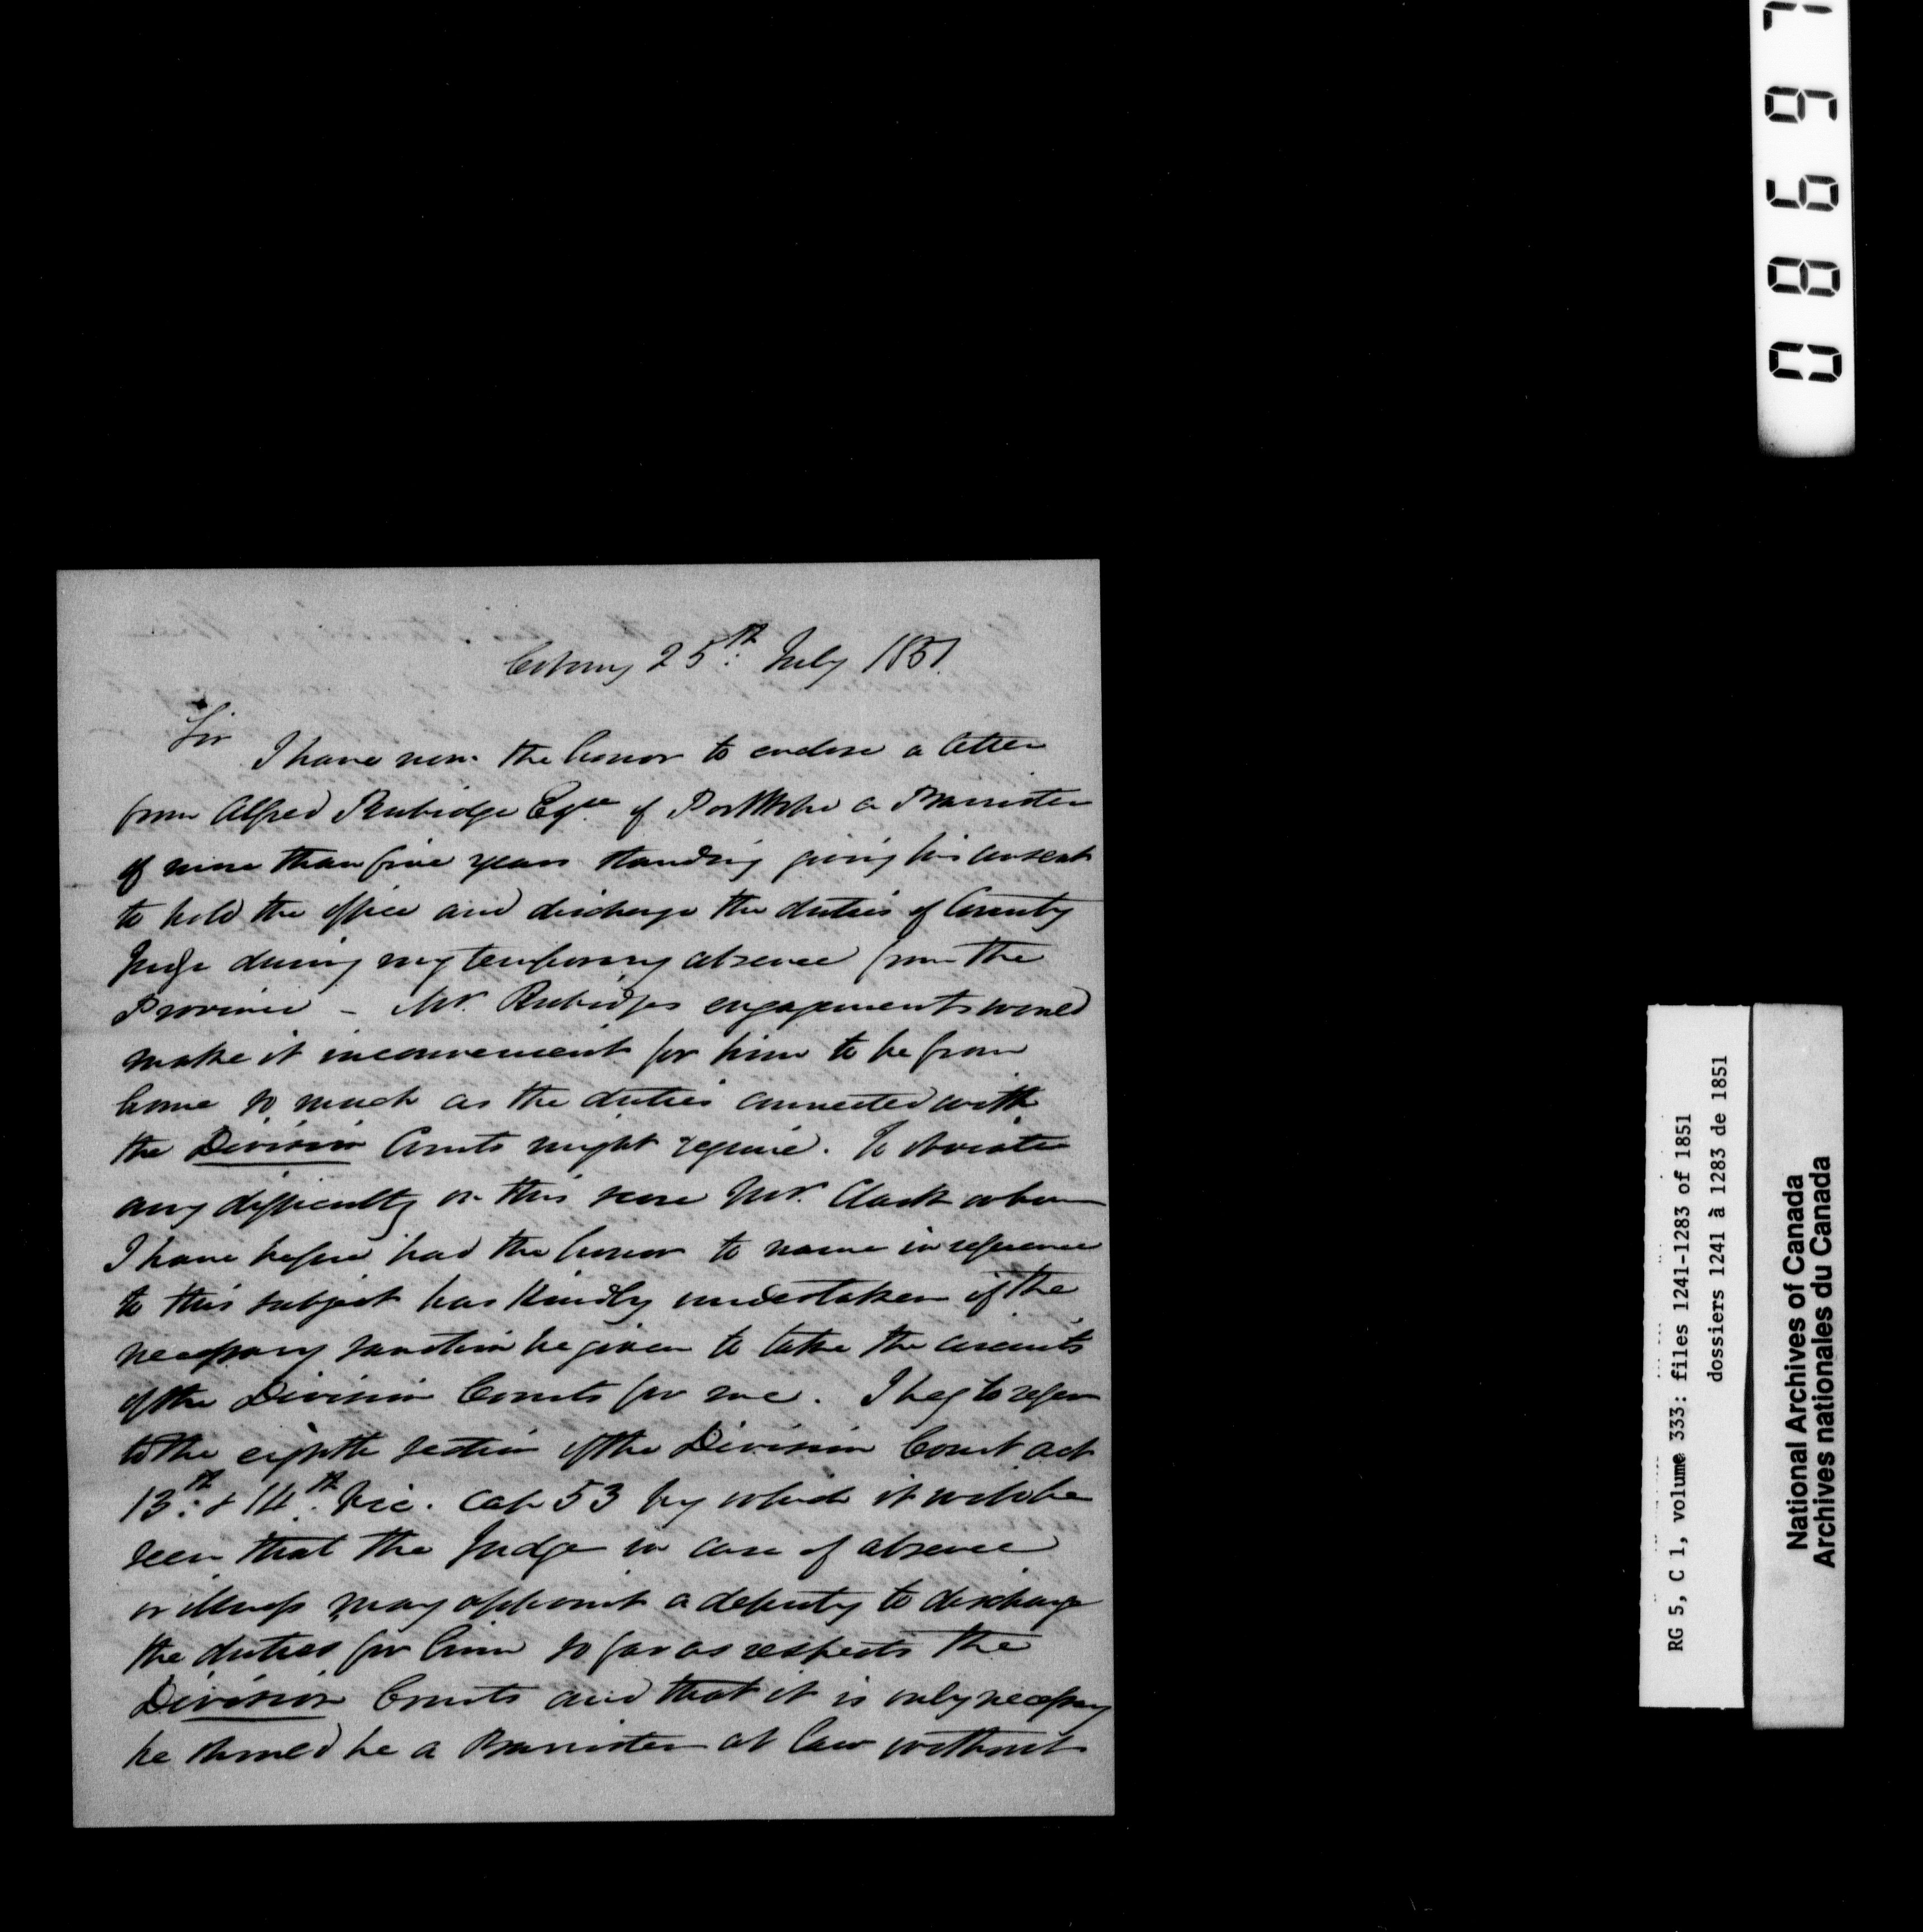 Cobourg 25th: July 1851.
Sir
I have now the honor to enclose a letter
from Alfred Rubidge Esqre of Port Hope a Barrister
of more than five years standing giving his consent
to hold the office and discharge the duties of County
Judge during my temporary absence from the
Province - Mr. Rubidges engagements would
make it inconvenient for him to be from
home so much as the duties connected with
the Division Courts might require. To obviate
any difficulty on this score Mr. Clark whom
I have before had the honor to name in reference
to this subject has kindly undertaken if the
necessary sanction be given to take the circuits
of the Division Courts for me. I beg to refer
to the eighth section of the Division Court act
13th: & 14th: Vic. Cap 53 by which it will be
seen that the Judge in case of absence
or illness may appoint a deputy to discharge
the duties for him so far as respects the
Division Courts and that it is only necessary
he should be a Barrister at Law without
08697
RG 5, C 1, volume 333: files 1241-1283 of 1851
dossiers 1241 à 1283 de 1851
National Archives of Canada
Archives nationales du Canada